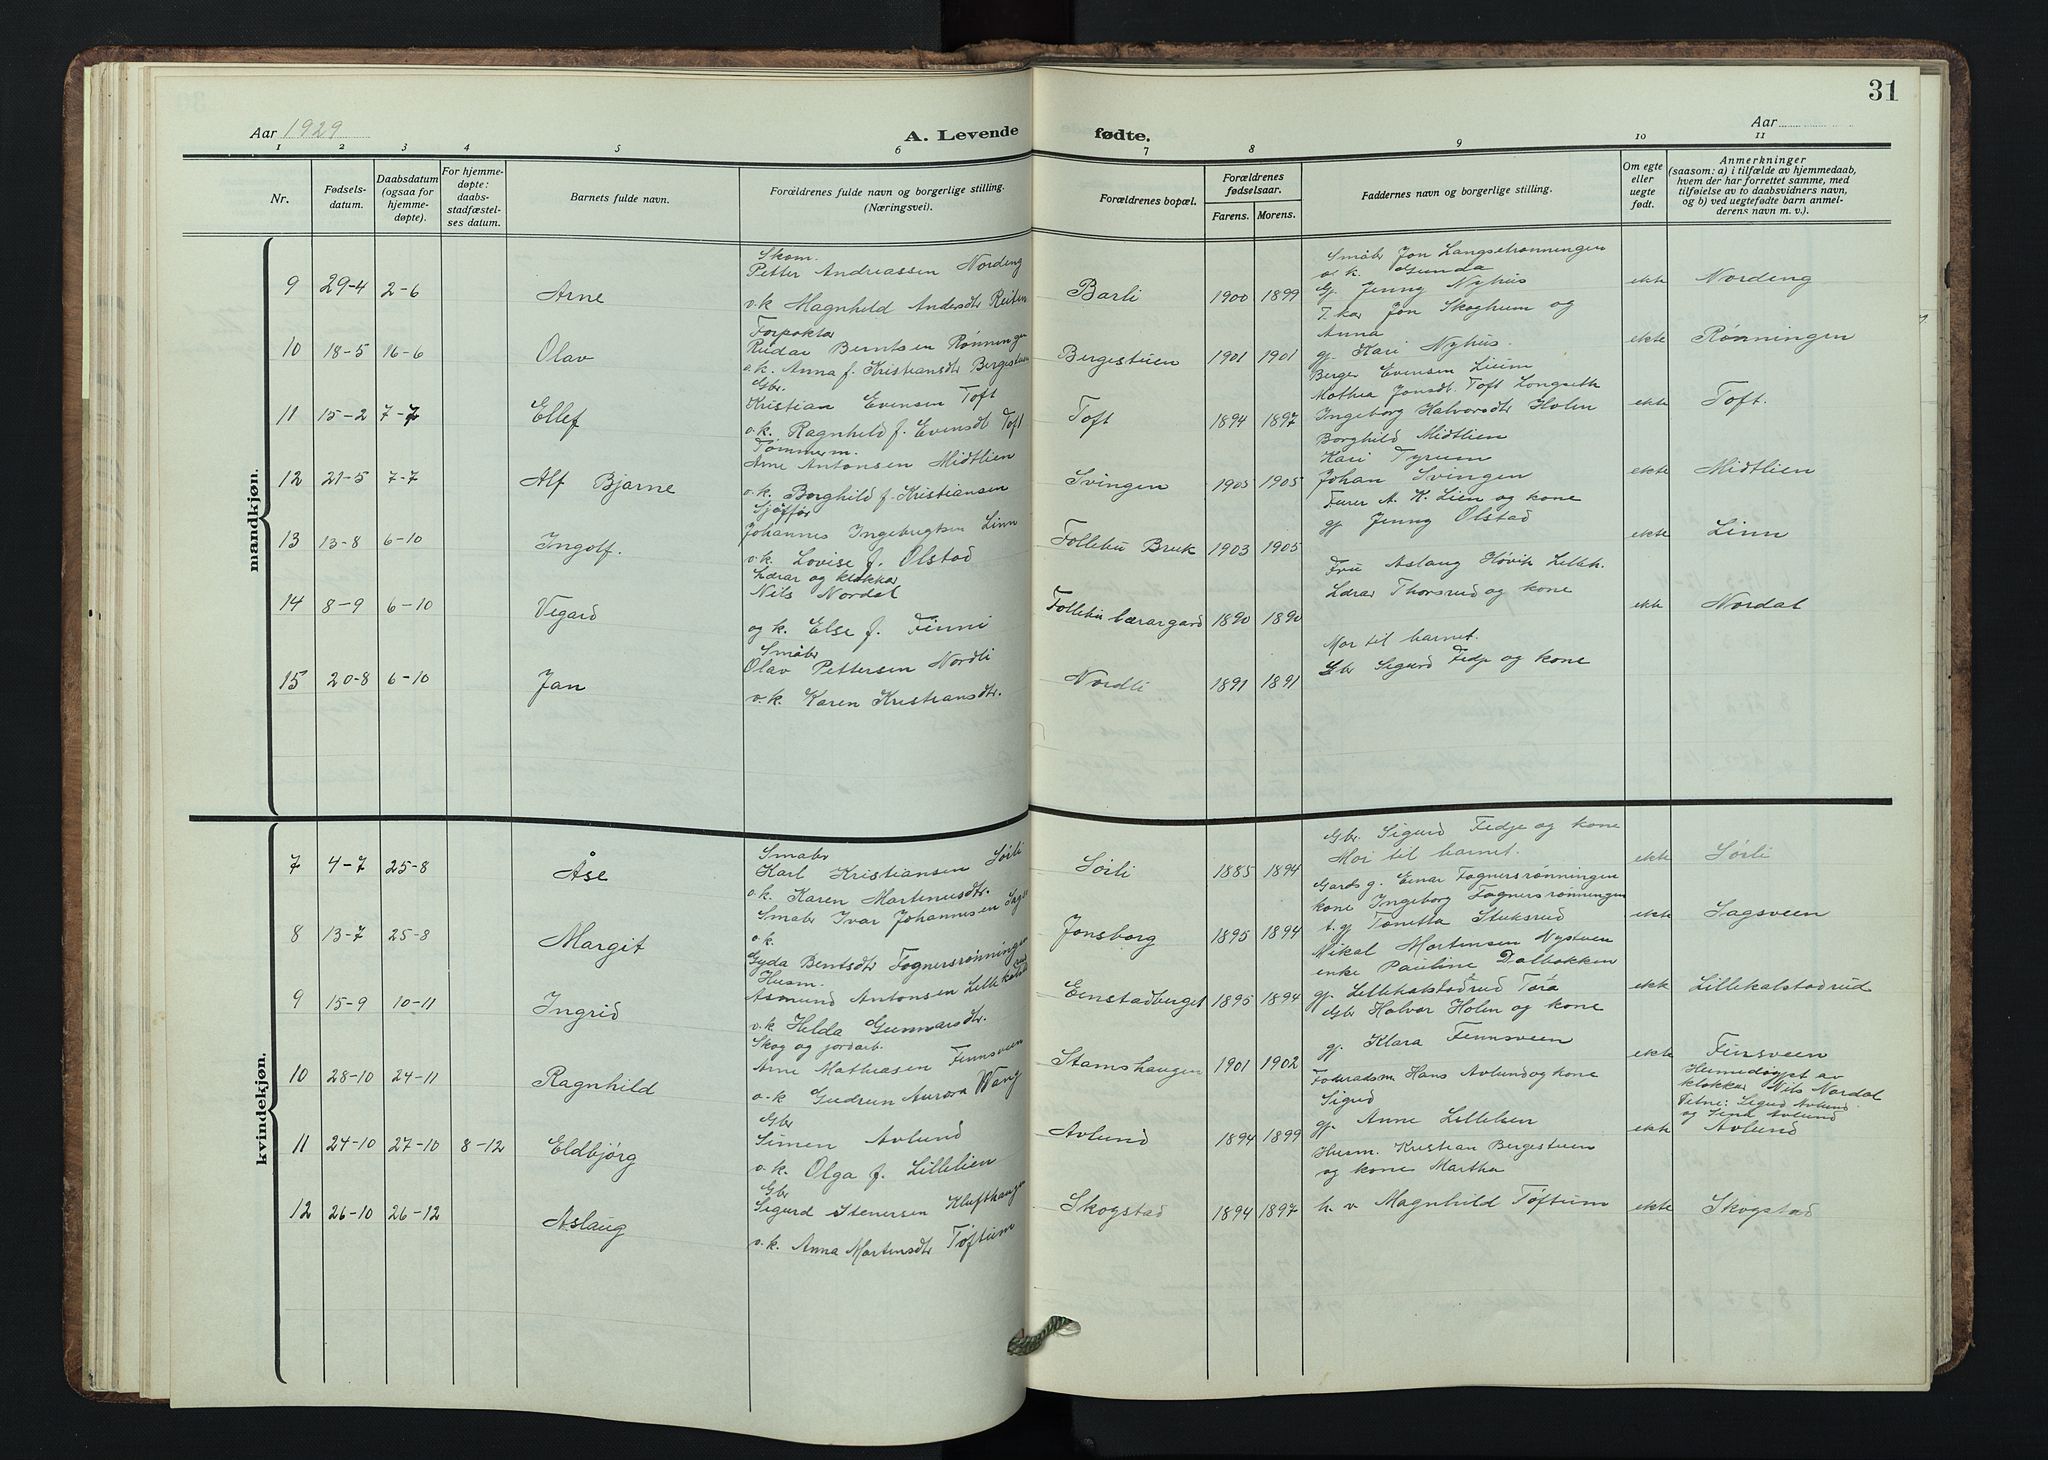 31
Aar 1929
A. Levende
fødte.
Aar
1 2 3 4 5 6 7 8 9 10 11
Nr.
Fødsels-
datum.
Daabsdatum
(ogsaa for
hjemme-
døpte).
For hjemme-
døpte:
daabs-
stadfæstel-
ses datum.
Barnets fulde navn.
Forældrenes fulde navn og borgerlige stilling.
(Næringsvei).
Forældrenes bopæl.
Forældrenes
fødselsaar.
Farens. Morens.
Faddernes navn og borgerlige stilling.
Om egte
eller
uegte
født.
Anmerkninger
(saasom: a) i tilfælde av hjemmedaab,
hvem der har forrettet samme, med
tilføielse av to daabsvidners navn,
og b) ved uegtefødte barn anmel-
derens navn m. v.).
mandkjøn.
9 29-4 2-6 Arne
Skom.
Petter Andreassen Nordeng
o.k. Magnhild Andersdtr Reiten
Barli 1900 1899
Småbr Jon Langsetrønningen
o. k. Gunda
Gj. Jenny Nyhus
T. kar Jon Skoghum og
Anna
ekte Nordeng
10 18-5 16-6 Olav
Forpakter
Reidar Berntsen Rønningen
o.k. Anna f. Kristiansdtr Bergestuen
Bergestuen 1901 1901
gj. Kari Nyhus.
Berger Evensen Lium
Mathea Jonsdt. Toft Longseth
ekte Rønningen
11 15-2 7-7 Ellef
Gbr.
Kristian Evensen Toft
o.k. Ragnhild f. Evensdt Toft
Toft 1894 1897
Ingeborg Halvorsdtr Holen
Borghild Midtlien
ekte Toft.
12 21-5 7-7 Alf Bjarne
Tømmerm.
Arne Antonsen Midtlien
o.k. Borghild f. Kristiansen
Svingen 1905 1905
Kari Tyrum
Johan Svingen
Furer A. K. Lien og kone
ekte Midtlien
13 13-8 6-10 Ingolf.
Sjåffør
Johannes Ingebrigtsen Linn
o.k. Lovise f. Olstad
Follebu Bruk 1903 1905
gj Jenny Olstad
ekte Linn
14 8-9 6-10 Vegard
Lærar og klokkar
Nils Nordal
og k. Else f. Finni
Follebu lærargard 1890 1890
Fru Aslaug Høvik Lilleh.
Lærar Thorsrud og kone
ekte Nordal
15 20-8 6-10 Jan
Småbr
Olav Pettersen Nordli
o.k. Karen Kristiansdtr.
Nordli 1891 1891
Mor til barnet.
Gbr Sigurd Fedje og kone
kvindekjøn.
7 4-7 25-8 Åse
Småbr
Karl Kristiansen Sørli
o.k. Karen Martenusdtr.
Sørli 1885 1894
Gbr. Sigurd Fedje og kone
Mor til barnet.
ekte Sørli
8 13-7 25-8 Margit
Småbr Ivar Johannesen
o.k.
Gyda Bentsdtr Fognersrønningen
Jonsborg 1895 1894
Gards g. Einar Fognersrønningen
kone Ingeborg Fognersrønningen
t. gj Tonetta Stuksrud
ekte Sagsveen
9 15-9 10-11 Ingrid
Husm.
Asmund Antonsen
o.k. Helda Gunnarsdtr.
Einstadberget 1895 1894
Mikal Mortensen Nystuen
enke Pauline Dalbakken
gj. Lillekalstadrud Tora
Gbr Halvor Holen og kone
ekte Lillekalstadrud
10 28-10 24-11 Ragnhild
Skog og jordarb.
Arne Mathiasen Finnsveen
o.k Gudrun Aurora Wang
Stamshaugen 1901 1902
gj. Klara Finnsveen
ekte Finsveen
11 24-10 27-10 8-12 Eldbjørg
Gbr
Simen Avlund
o.k. Olga f. Lillelien
Avlund 1894 1899
Hans Avlund og kone
Sigrid
gj. Anne Lillelien
ekte
Heimedøypt av
klokkar Nils Nordal
Vitne: Sigrid Avlund
og Avlund
Avlund
12 26-10 26-12 Aslaug
Gbr
Sigurd Stenersen Klufthaugen
o.k. Anna Martensdtr Tøftum
Skogstad 1894 1897
Husm. Kristian Bergestuen
og kones Martha
h. v Magnhild Tøftum
ekte Skogstad